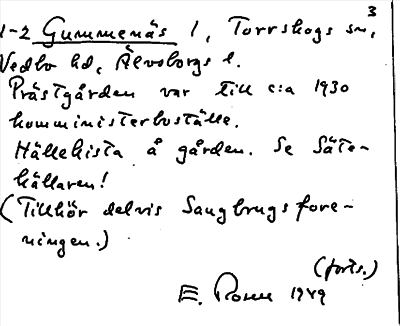 3
1-2 Gummenäs 1, Torrskogs sn,
Vedbo hd, Älvsborgs l.
Prästgården var till c:a 1930
komministerboställe.
Hällekista å gården. Se Säte-
källaren!
(Tillhör delvis Saugbrugsfore-
ningen.)
(forts.)
E. 1949